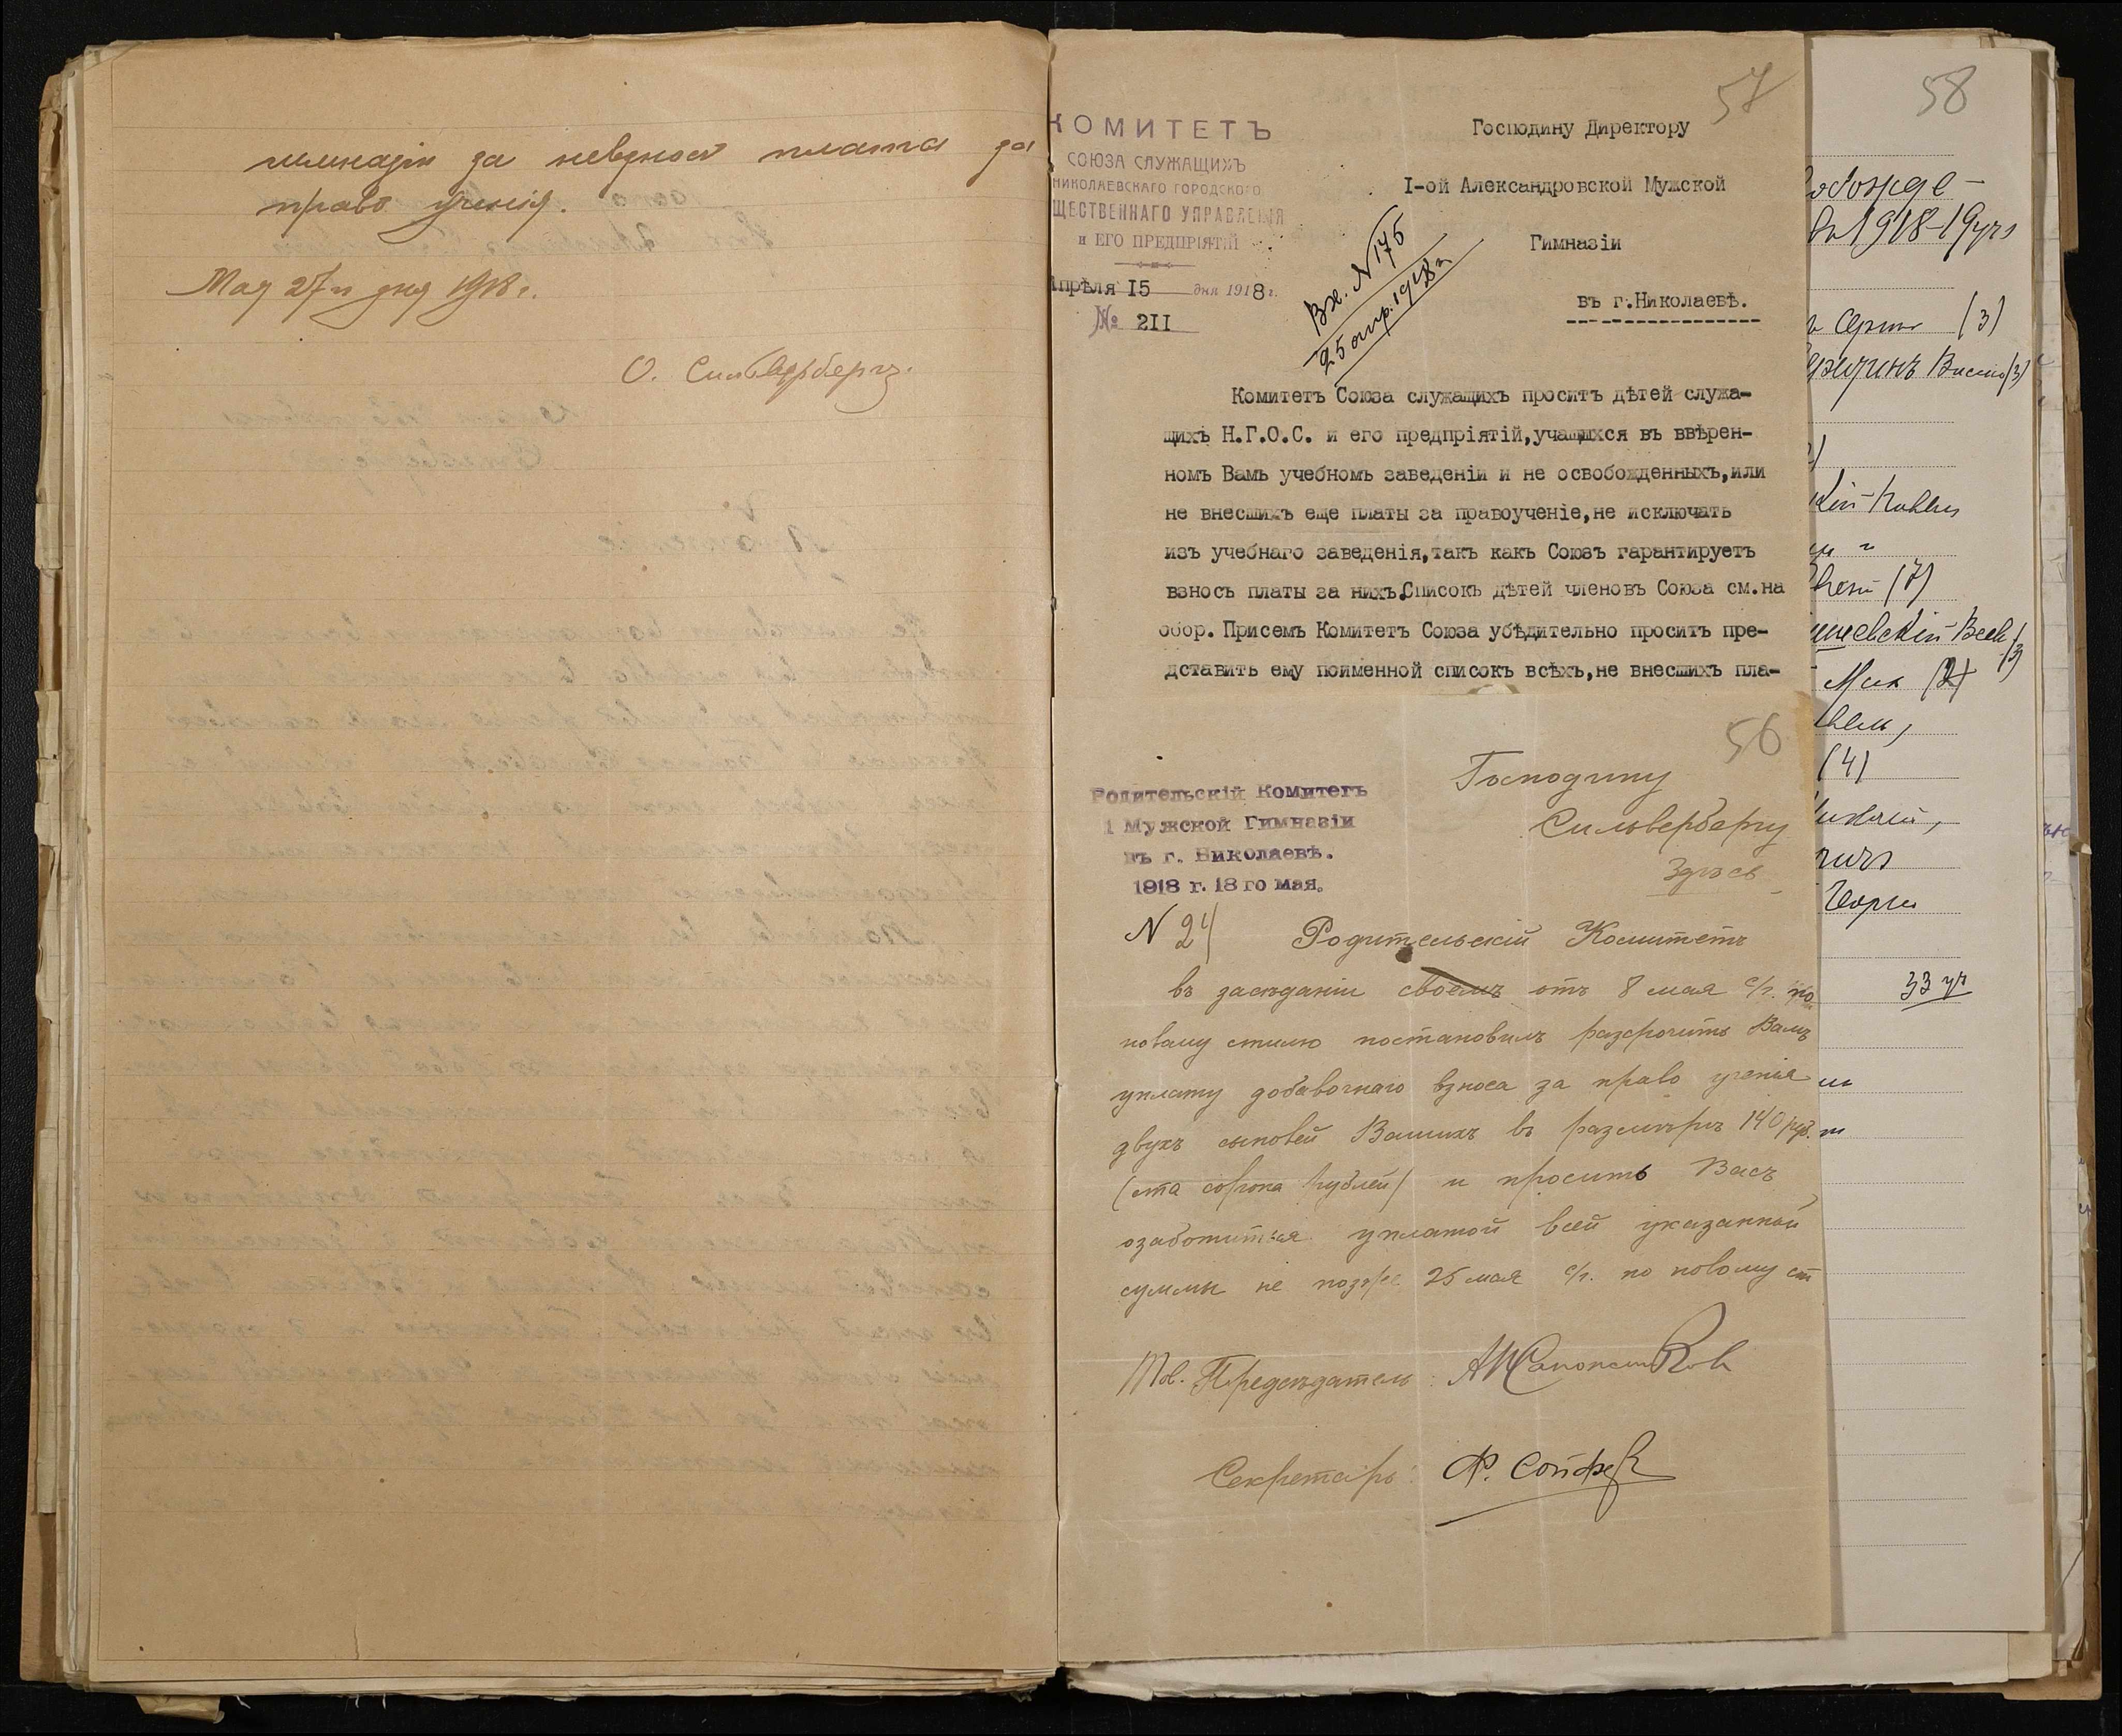 гимназіи за невзносъ платы за
право ученія.
Мая 27го дня 1918 г.
О. Сильверберг.
57
КОМИТЕТЪ
СОЮЗА СЛУЖАЩИХЪ
НИКОЛАЕВСКАГО ГОРОДСКОГО
ЩЕСТВЕННАГО УПРАВЛЕНІЯ
и ЕГО ПРЕДПРІЯТІЙ
Апрѣля 15 дня 1918 г.
№ 211
Вх. N 175
25 апр. 1918 г.
Господину Директору
I-ой Александровской Мужской
Гимназіи
въ г.Николаевѣ.
Комитетъ Союза служащихъ проситъ дѣтей служа-
щихъ Н.Г.О.С. и его предпріятій,учащихся въ ввѣрен-
номъ Вамъ учебномъ заведеніи и не освобожденныхъ,или
не внесшихъ еще платы за правоученіе,не исключать
изъ учебнаго заведенія,такъ какъ Союзъ гарантируетъ
взносъ платы за нихъ.Списокъ дѣтей членовъ Союза см.на
обор. Присемъ Комитетъ Союза убѣдительно проситъ пре-
дставить ему поименной списокъ всѣхъ,не внесшихъ пла-
56
Родительскій Комитетъ
1 Мужской Гимназіи
въ г. Николаевѣ.
1918 г. 18 го мая.
N 24
Господину
Сильвербергу
Здѣсь
Родительскій Комитетъ
въ засѣданіи своемъ отъ 8 мая с/г. по
новому стилю постановилъ разсрочить Вамъ
уплату добавочнаго взноса за право ученія
двухъ сыновей Вашихъ въ размѣрѣ 140 руб.
(ста сорока рублей) и просить Васъ
озаботиться уплатой всей указанной
суммы не позже 25 мая с/г. по новому ст
Тов. Предсѣдатель:
Секретарь:
58
1918-19 уч
(3)
(7)
Мих (2)
(4)
33 уч